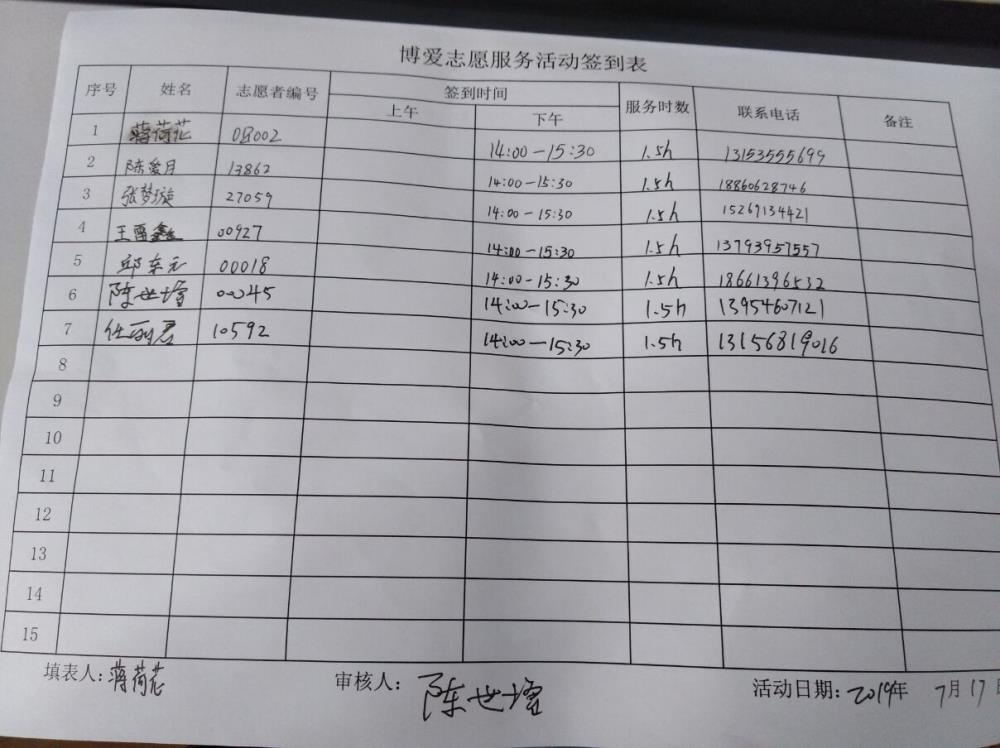 博爱志愿服务活动签到表
序号 姓名 志愿者编号 签到时间 服务时数 联系电话 备注
上午 下午
1 蒋荷花 08002 14:00-15:30 1.5h 13153555699
2 陈爱月 13862 14:00-15:30 1.5h 18860628746
3 张梦璇 27059 14:00-15:30 1.5h 15269134421
4 王雷鑫 00927 14:00-15:30 1.5h 13793957557
5 邱东元 00018 14:00-15:30 1.5h 18661396532
6 陈世增 00045 14:00-15:30 1.5h 13954607121
7 任丽君 10592 14:00-15:30 1.5h 13156819016
8
9
10
11
12
13
14
15
填表人:蒋荷花 审核人:陈世增 活动日期:2019年 7月17日